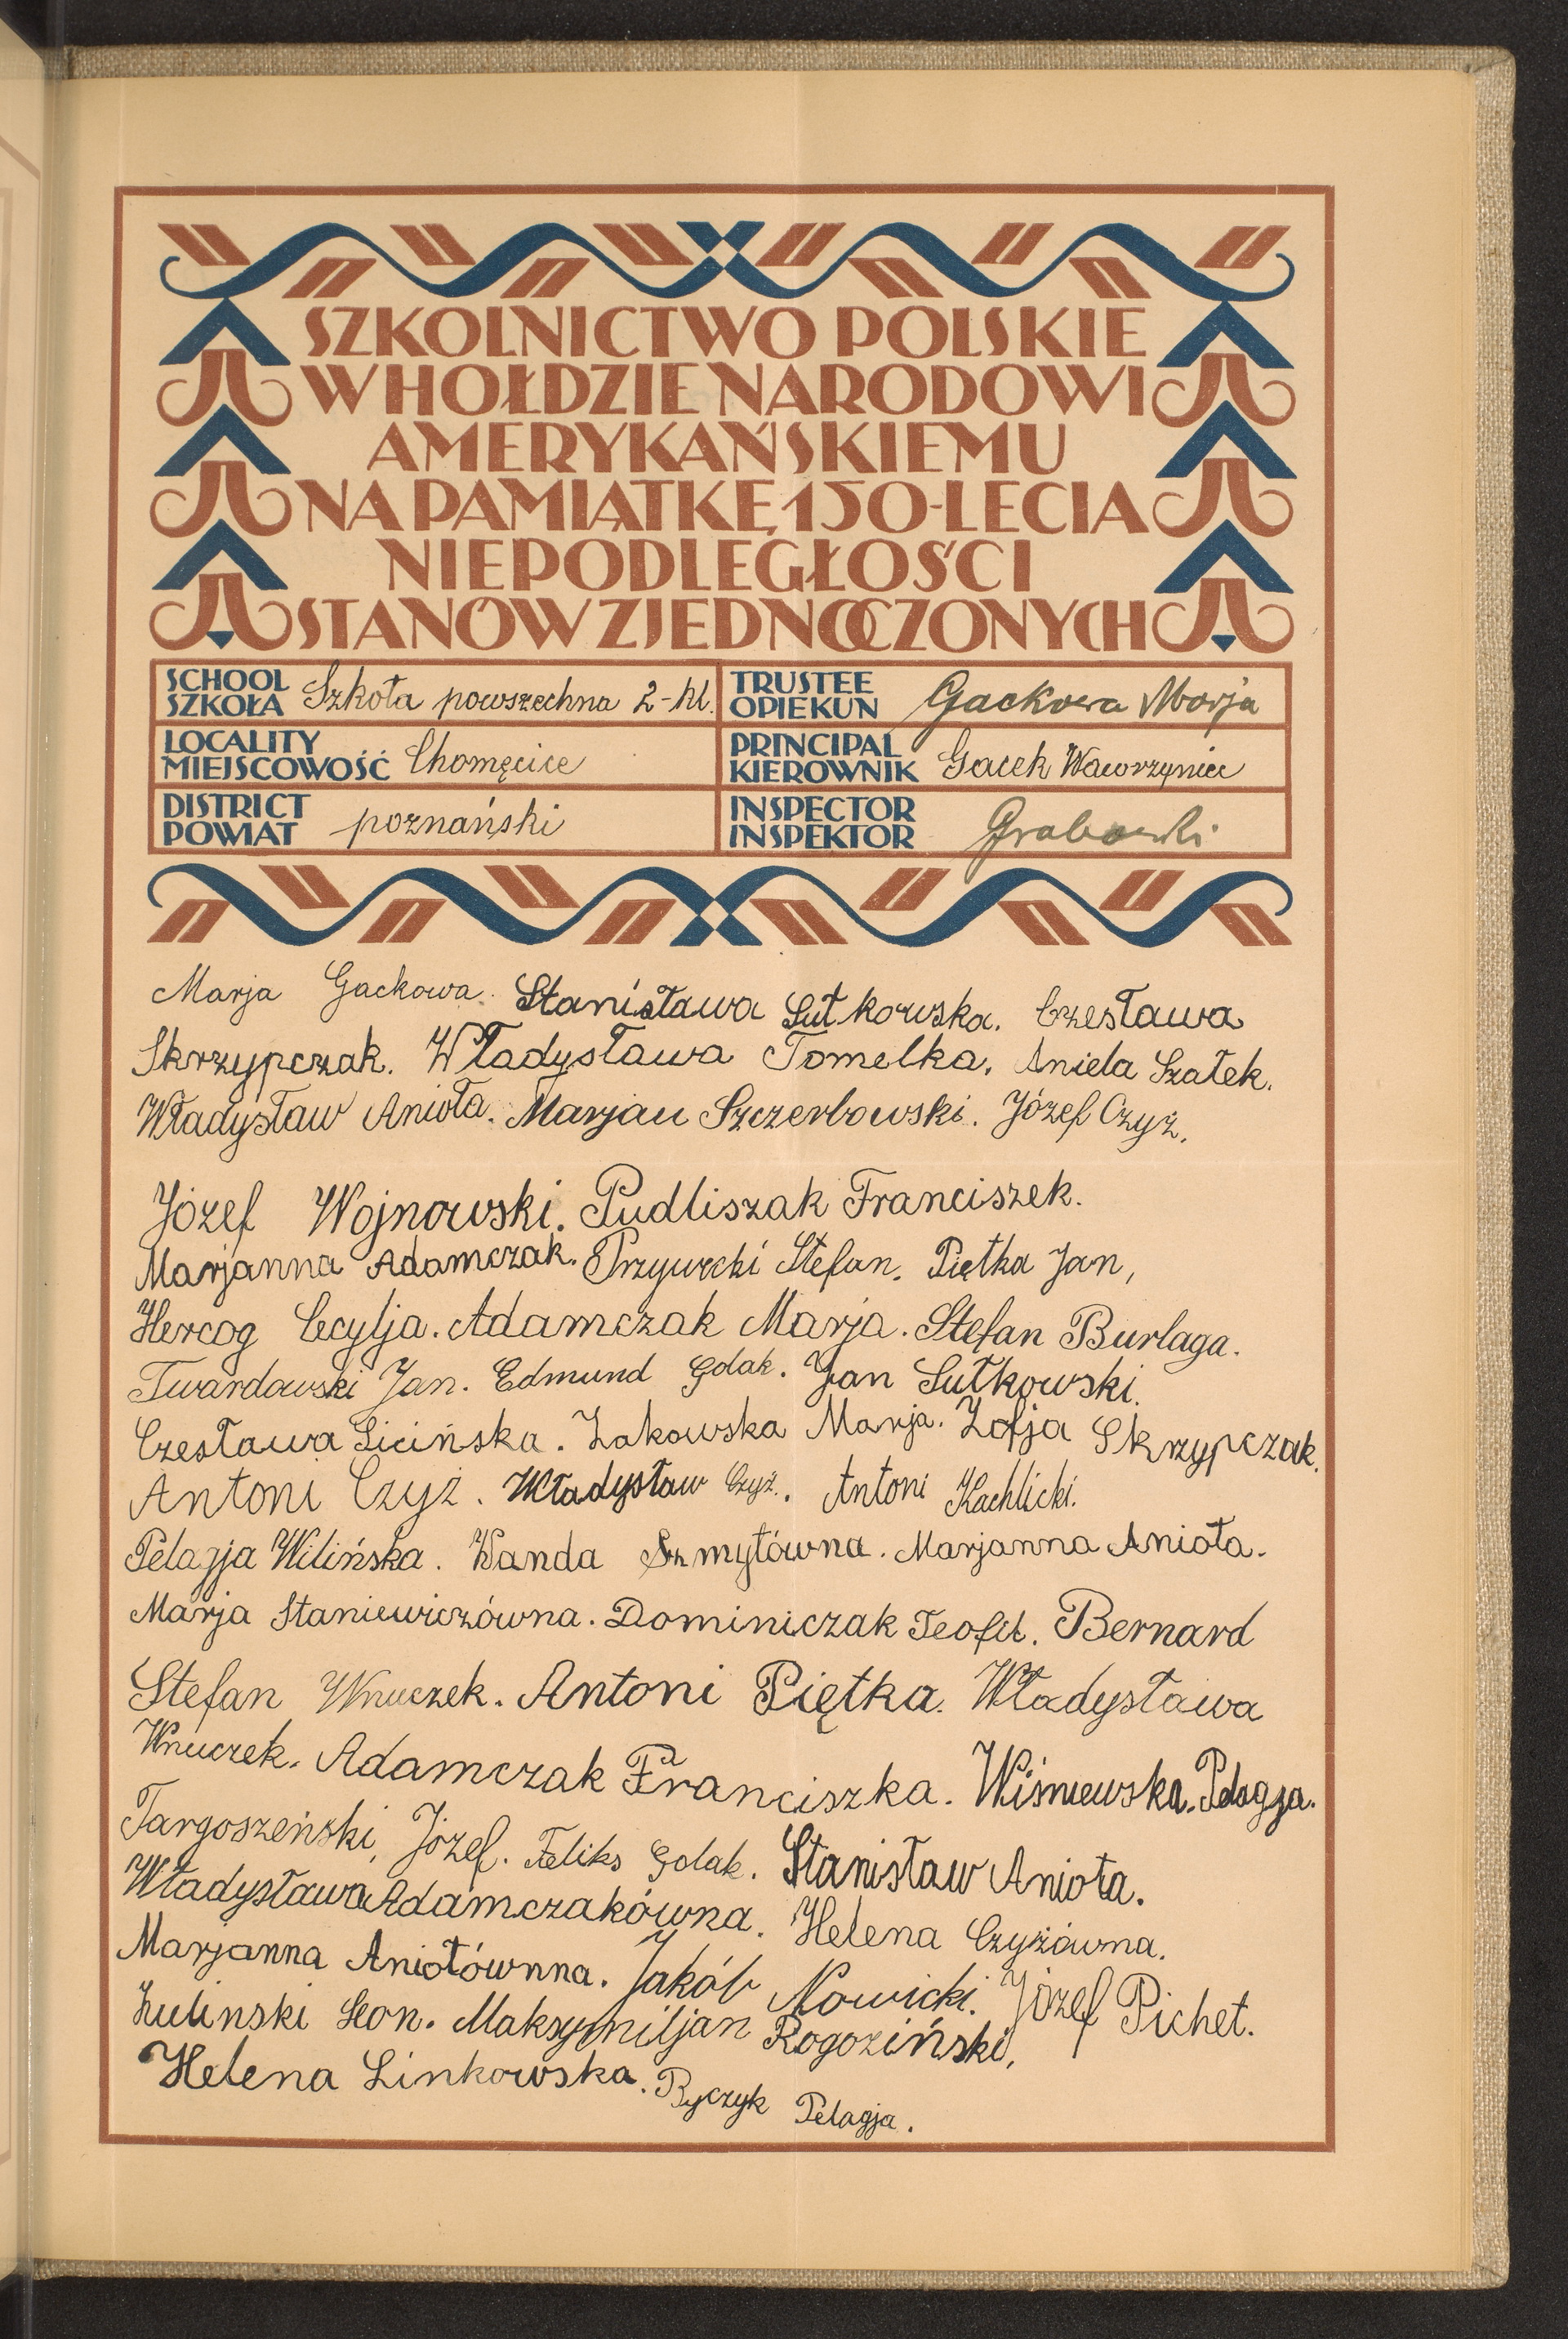 SZKOLNICTWO POLSKIE
W HOŁDZIE NARODOWI
AMERYKAŃSKIEMU
NA PAMIĄTKĘ 150-LECIA
NIEPODLEGŁOŚCI
STANÓW ZJEDNOCZONYCH
SCHOOL
SZKOŁA Szkoła powszechna 2-kl.
TRUSTEE
OPIEKUN Gackowa Marja
LOCALITY
MIEJSCOWOŚĆ Chomęcice
PRINCIPAL
KIEROWNIK Gacek Wawrzyniec
DISTRICT
POWIAT poznański
INSPECTOR
INSPEKTOR Grabowski
Marja Gackowa. Stanisława Sutkowska. Czesława
Skrzypczak. Władysława Tomelka. Aniela Szałek.
Władysław Anioła. Marjan Szczerbowski. Józef Czyż.
Józef Wojnowski. Pudliszak Franciszek.
Marjanna Adamczak. Przywecki Stefan. Piętka Jan,
Hercog Cecylja. Adamczak Marja. Stefan Burlaga.
Twardowski Jan. Edmund Golak. Jan Sutkowski.
Czesława Sicińska. Żakowska Marja. Zofja Skrzypczak.
Antoni Czyż. Władysław Czyż. Antoni Kachlicki.
Pelagja Wilińska. Wanda Szmytówna. Marjanna Anioła.
Marja Staniewiczówna. Dominiczak Teofil. Bernard
Stefan Wnuczek. Antoni Piętka. Władysława
Wnuczek. Adamczak Franciszka. Wiśniewska. Pelagja.
Targoszeński, Józef. Feliks Golak. Stanisław Anioła.
Władysława Adamczakówna. Helena Czyżówna.
Marjanna Aniołównna. Jakób Nowicki. Józef Pichet.
Żulinski Leon. Maksymiljan Rogoziński,
Helena Linkowska. Ryczyk Pelagja.